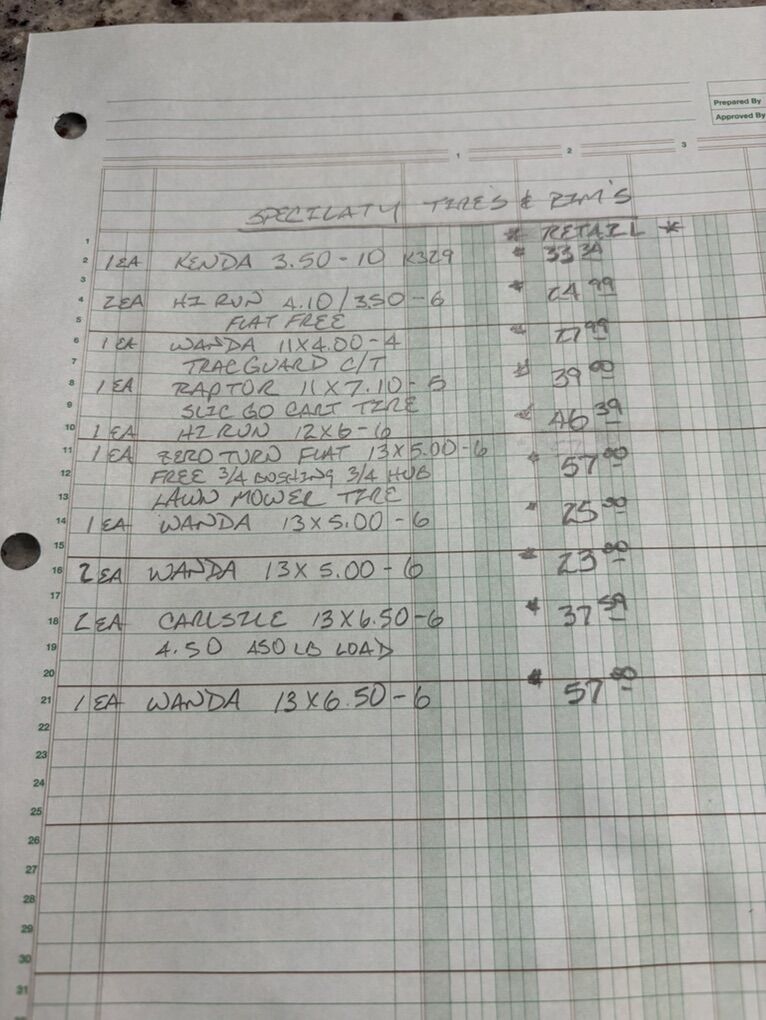 Prepared By
Approved By
1 2 3
SPECILATY TIRE'S & RIM'S
1 * RETAIL *
2 1 EA KENDA 3.50-10 K329 $ 33
3
4 2 EA HI RUN 4.10/3.50-6 $ 24 99
5 FLAT FREE
6 1 EA WANDA 11X4.00-4 $ 27 99
7 TRACGUARD C/T
8 1 EA RAPTOR 11X7.10-5 $ 39 00
9 SLIC GO CART TIRE
10 1 EA HI RUN 12X6-6 $ 46 39
11 1 EA ZERO TURN FLAT 13X5.00-6 $ 57 00
12 FREE 3/4 BUSHING 3/4 HUB
13 LAWN MOWER TIRE
14 1 EA WANDA 13X5.00-6 $ 25 00
15
16 2 EA WANDA 13X5.00-6 $ 23 00
17
18 2 EA CARLSILE 13X6.50-6 $ 37 59
19 4.50 450 LB LOAD
20
21 1 EA WANDA 13X6.50-6 $ 57 00
22
23
24
25
26
27
28
29
30
31